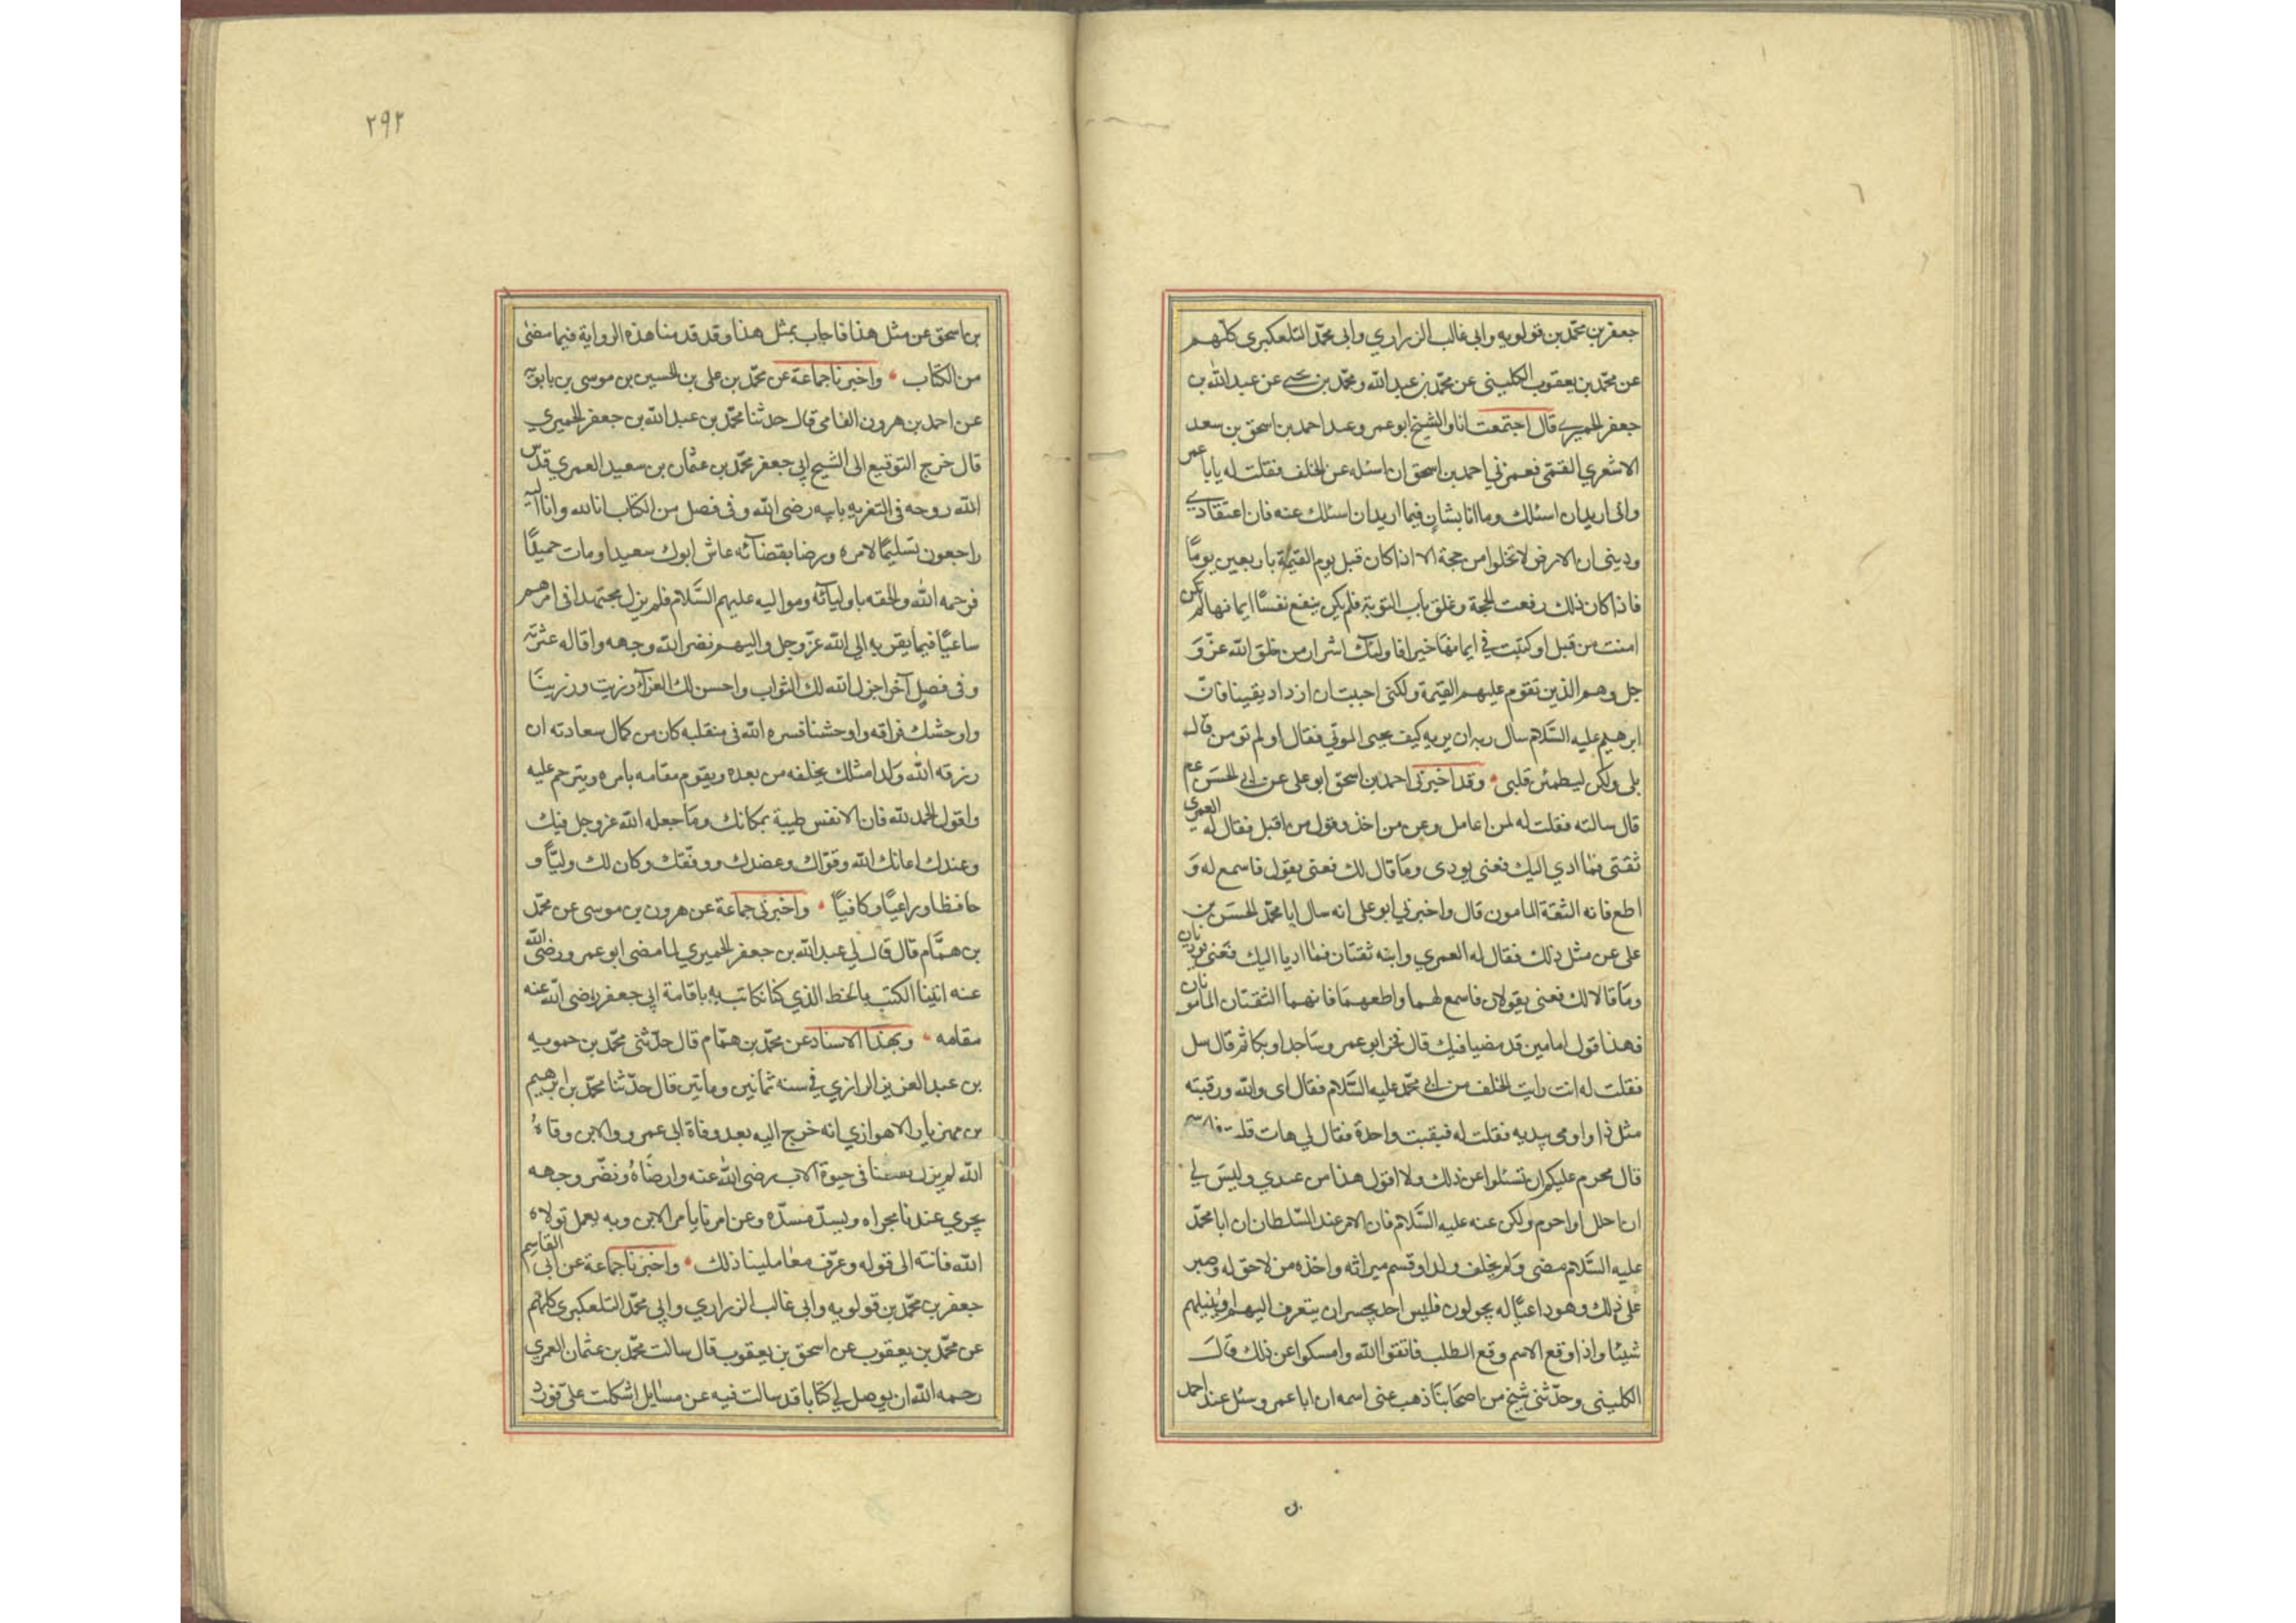 جعفر بن محمّد بن قولويه وابي غالب الزراري وابى محمّد التلعكبرى كلّهم
عن محمّد بن يعقوب الكليني عن محمّد بن عبد الله ومحمّد بن يحيى عن عبد الله بن
جعفر الحميرى قال اجتمعت انا والشيخ ابو عمرو عند احمد بن اسحق بن سعد
الاشعري القمّى فغمزني احمد بن اسحق ان اسئله عن الخلف فقلت له يا با عمر
وانى اريد ان اسئلك وما انا بشانٍ فيما اريد ان اسئلك عنه فان اعتقادي
وديني ان الارض لا تخلوا من حجة الا اذا كان قبل يوم القيٰمة باربعين يومًا
فاذا كان ذلك رفعت الحجة وغلق باب التوبة فلم يكن ينفع نفسًا ايمانها لم تكن
امنت من قبل او كسبت في ايمانها خيرا فاولئك اشرار من خلق الله عزّ وَ
جل وهم الذين تقوم عليهم القيٰمة ولكنى احببت ان ازداد يقينا فانّ
ابرهيم عليه السَّلام سال ربه ان يريه كيف يحيى الموتي فقال او لم تومن قال
بلى ولكن ليطمئن قلبي • وقد اخبرني احمد بن اسحق ابو على عن ابي الحسَن عم
قال سالته فقلت له لمن اعامل وعن من اخذ وقول من اقبل فقال له العمرى
ثقتى فمٰا ادي اليك فعنى يودى ومَا قال لك فعنى يقول فاسمع له وَ
اطع فانه الثقة المامون قال واخبرني ابو على انه سال ابا محمّد الحسَن بن
على عن مثل ذلك فقال له العمري وابنه ثقتان فمٰا اديا اليك فعَنى يوديان
ومَا قالا لك فعنى يقولان فاسمع لهما واطعهمَا فانهما الثقتان المامونان
فهذا قول امامين قد مضيا فيك قال فخر ابو عمرو ساجدا وبكا ثم قال سل
فقلت له انت رايت الخلف من ابى محمّد عليه السَّلام فقال اى والله ورقبته
مثل ذا واومى بيديه فقلت له فبقيت واحدة فقال لي هات قلت
قال محرم عليكم ان تسئلوا عن ذلك ولا اقول هذا من عندي وليسَ لي
ان احلل او احرم ولكن عنه عليه السَّلام فان الامر عند السّلطان ان ابا محمّد
عليه السَّلام مضى وَلم يخلف ولدا وقسم ميراثه واخذه من لا حق له وصبر
على ذلك وهو ذا عيَاله يجولون فليس احد يجسر ان يتعرف اليهم او ينيلهم
شيئا واذا وقع الاسم وقع الطلب فاتقوا الله وامسكوا عن ذلك قالَ
الكلينى وحدّثنى شيخ من اصحَابنا ذهب عنى اسمه ان ابا عمرو سئل عند احمد
٢٩٢
بن اسحق عن مثل هذا فاجاب بمثل هذا وقد قدمنا هذه الرواية فيما مضىٰ
من الكتاب • واخبرنا جماعة عن محمّد بن على بن الحسين بن موسى بن بابويه
عن احمد بن هرون الفامى قال حدثنا محمّد بن عبد الله بن جعفر الحميري
قال خرج التوقيع الى الشيخ ابي جعفر محمّد بن عثمان بن سعيد العمري قدّس
الله روحه فى التعزيه بابيه رضى الله وفى فصل من الكتاب انا لله وانا اليه
راجعون تسليمًا لامره ورضا بقضآئه عاش ابوك سعيدا ومات حميدًا
فرحمه الله والحقه باوليآئه ومواليه عليهم السَّلام فلم يزل مجتهدا فى امرهم
ساعيًا فيما يقربه الى الله عزّ وجل واليهم نضر الله وجهه واقاله عثرته
وفى فصلٍ آخر اجزل الله لك الثواب واحسن لك العزآء رزيت ورزينَا
واوحشك فراقه واوحشنا فسره الله فى منقلبه كان من كمال سعادته ان
رزقه الله وَلدا مثلك يخلفه من بعده ويقوم مقامه بامره ويترحم عليه
واقول الحمد لله فان الانفس طيبة بمكانك ومَا جعله الله عز وجل فيك
وعندك اعانك الله وقوّاك وعضدك ووفّقك وكان لك وليًّا و
حافظا وراعيًا وكافيًا • واخبرنى جماعة عن هرون بن موسى عن محمّد
بن همَّام قال قال لي عبد الله بن جعفر الحميري لما مضى ابو عمرو رضى الله
عنه اتينا الكتب بالخط الذي كنا نكاتب به باقامة ابي جعفر رضى الله عنه
مقامه • وبهذا الاسناد عن محمّد بن همّام قال حدّثنى محمّد بن حمويه
بن عبد العزيز الرازي في سنه ثمانين وماتين قال حدّثنا محمّد بن ابرهيم
بن مهزيار الاهوازي انه خرج اليه بعد وفاة ابى عمرو والابن وقاهُ
الله لم يزل ثقتنا فى حيوة الاب رضى الله عنه وارضَاهُ ونضّر وجهه
يجري عندنا مجراه ويسدّ مسدّه وعن امرنا يامر الابن وبه يعمل تولاه
الله فانته الى قوله وعرّف معٰاملينا ذلك • واخبَرنا جماعة عن ابى القاسم
جعفر بن محمّد بن قولويه وابى غالب الزراري وابي محمّد التلعكبرى كلهم
عن محمّد بن يعقوب عن اسحق بن يعقوب قال سالت محمّد بن عثمان العمري
رحمه الله ان يوصل لي كتابا قد سالت فيه عن مسٰايل اشكلت علىّ فورد